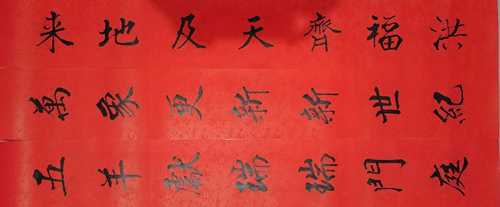 洪福齊天及地来
萬象更新新世紀
五羊獻瑞瑞門庭